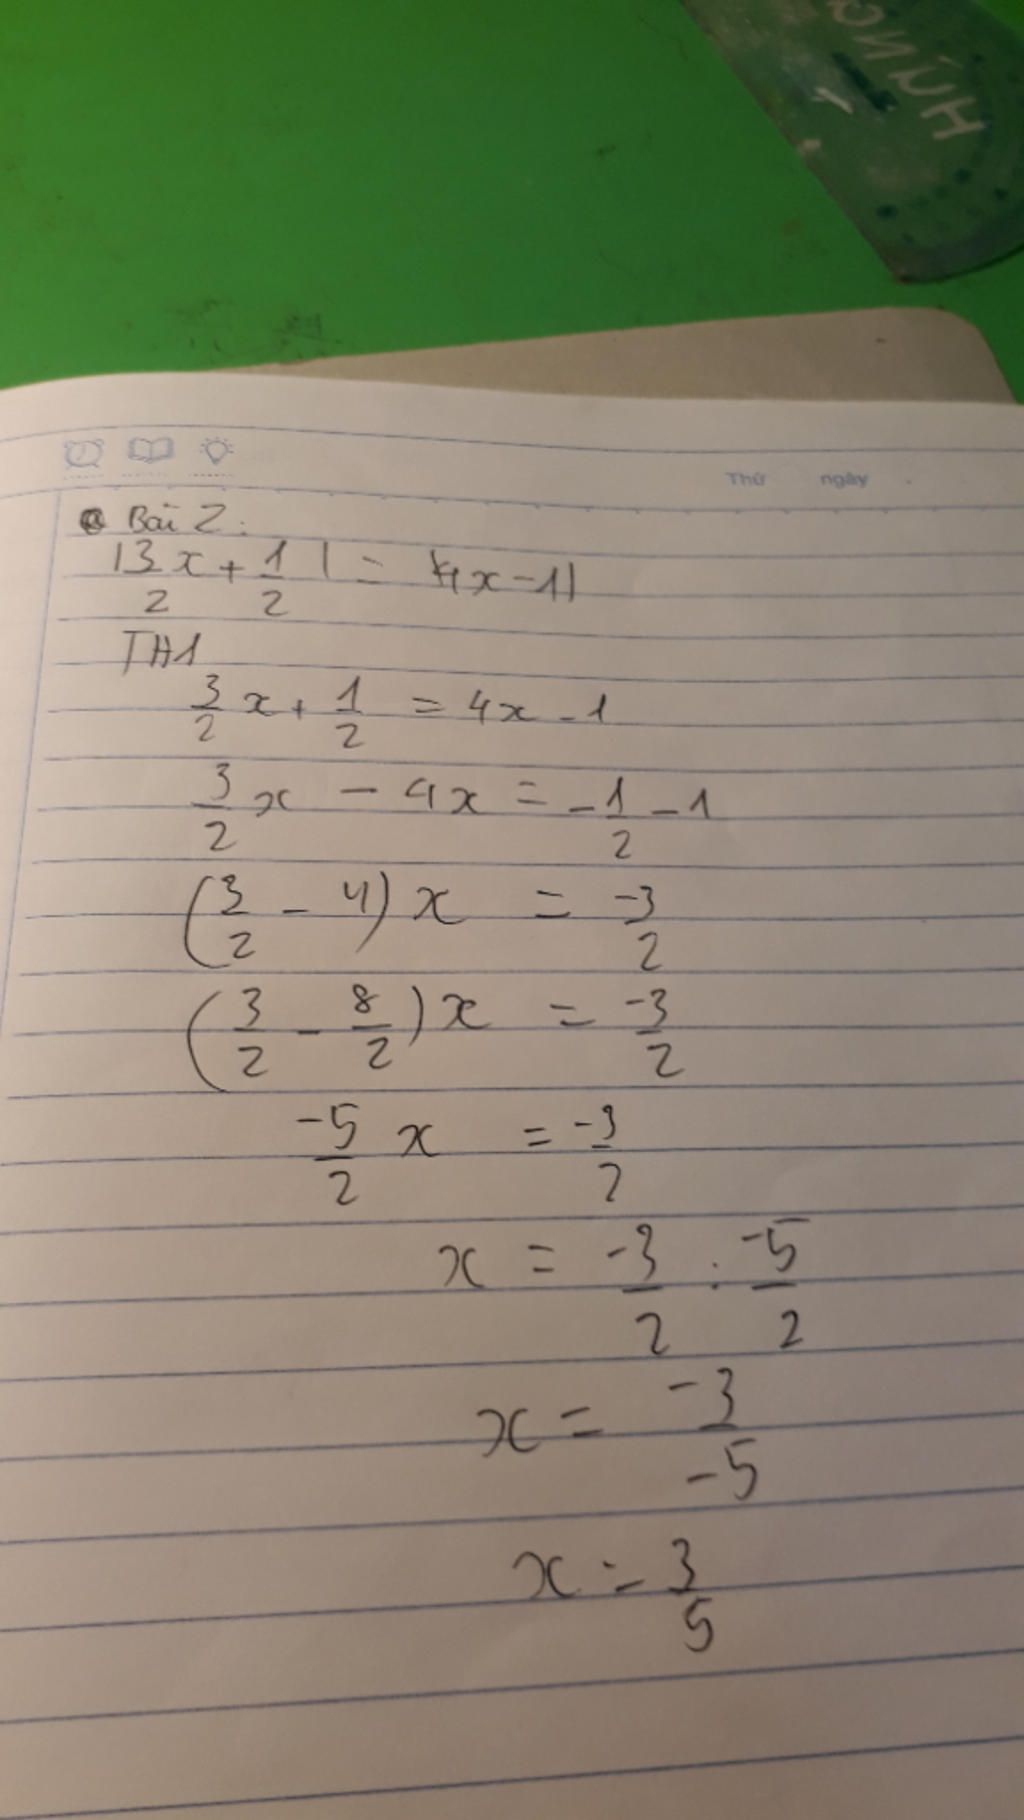 HNINO
Thứ ngày
Bài 2:
|3/2 x + 1/2| = |4x - 1|
TH1
3/2 x + 1/2 = 4x - 1
3/2 x - 4x = -1/2 - 1
(3/2 - 4) x = -3/2
(3/2 - 8/2) x = -3/2
-5/2 x = -3/2
x = -3/2 : -5/2
x = -3/-5
x = 3/5